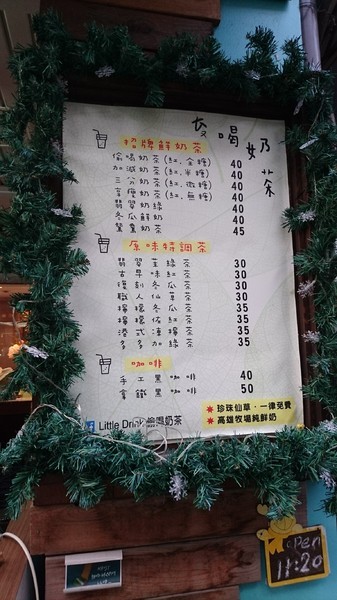 喝奶茶
招牌鮮奶茶
偷喝奶茶(紅.全糖) 40
加減奶茶(紅.半糖) 40
三分奶茶(紅.微糖) 40
享瘦奶茶(紅.無糖) 40
翡翠奶綠 40
冬瓜奶茶 40
鴛鴦奶茶 45
原味特調茶
翡翠茉綠茶 30
古早味紅茶 30
復刻冬瓜茶 30
職人仙草茶 30
檸檬冬瓜茶 35
檸檬紅茶 35
港式凍檸茶 35
多多綠茶 35
咖啡
手工黑咖啡 40
拿鐵咖啡 50
珍珠仙草.一律免費
高雄牧場純鮮奶
Little Drink 偷喝奶茶
open
11:20